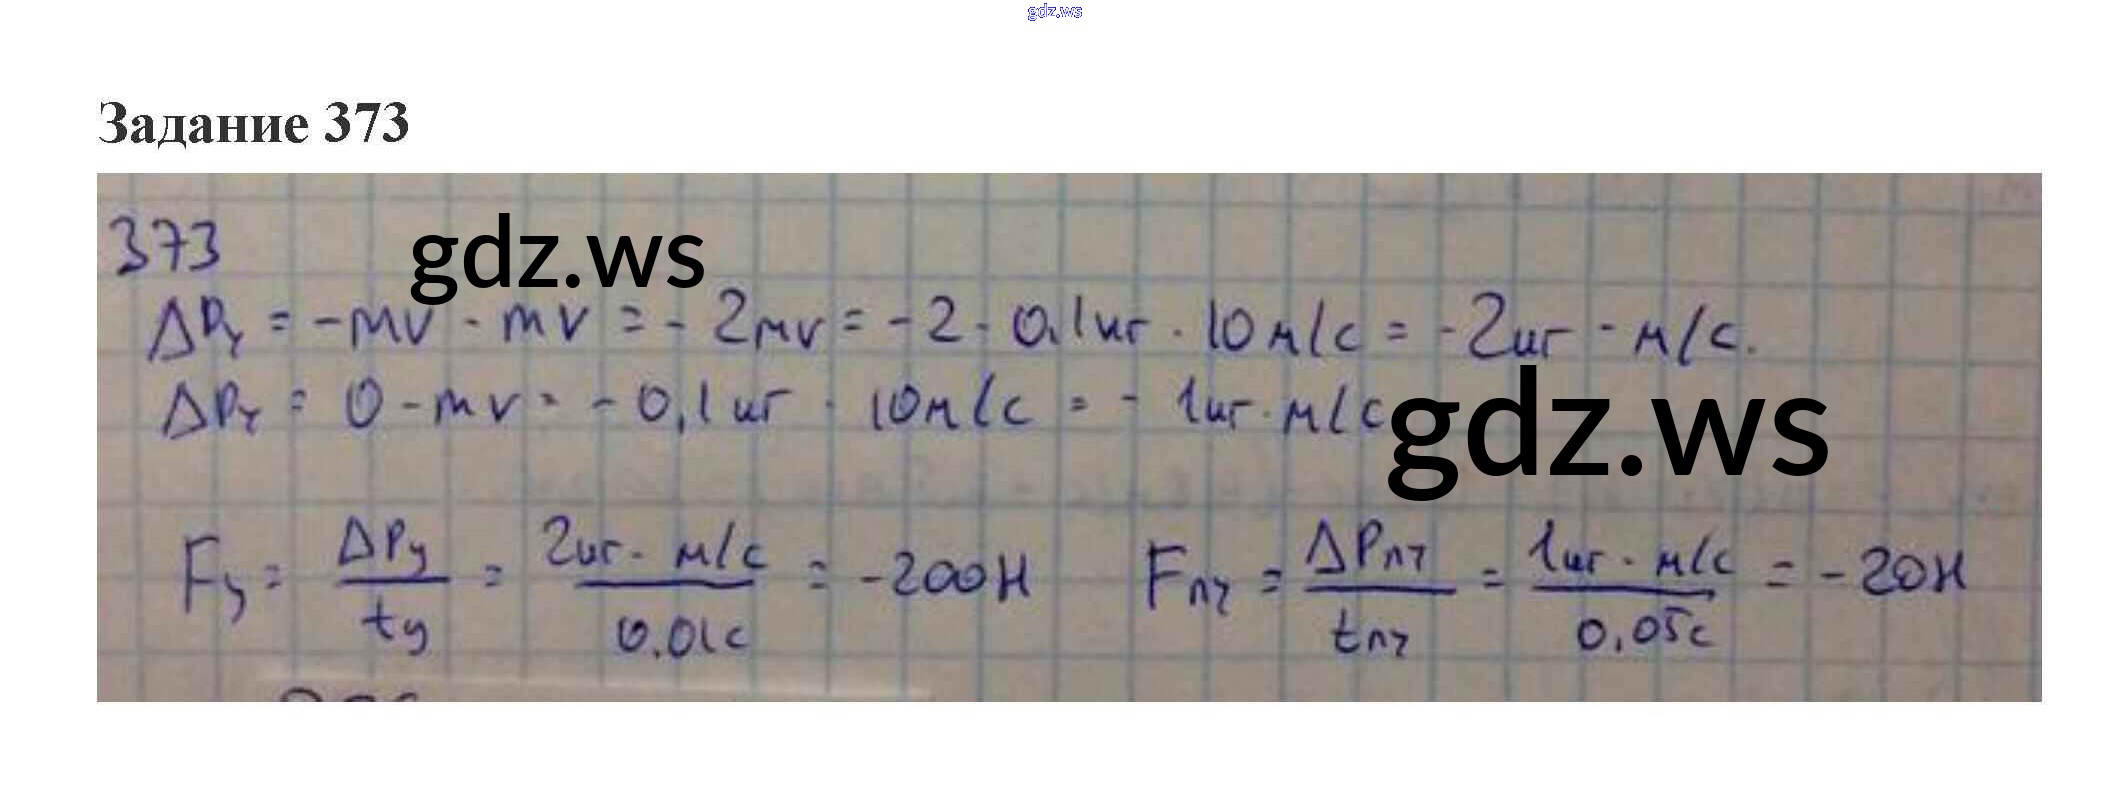 gdz.ws
Задание 373
373
gdz.ws
ΔPу = -mv - mv = - 2mv = -2 · 0,1кг · 10м/с = -2кг · м/с.
ΔPу = 0 - mv = - 0,1кг · 10м/с = - 1кг · м/с
gdz.ws
Fу = ΔPу / tу = 2кг · м/с / 0.01с = -200Н Fпч = ΔPпч / tпч = 1кг · м/с / 0,05с = -20Н